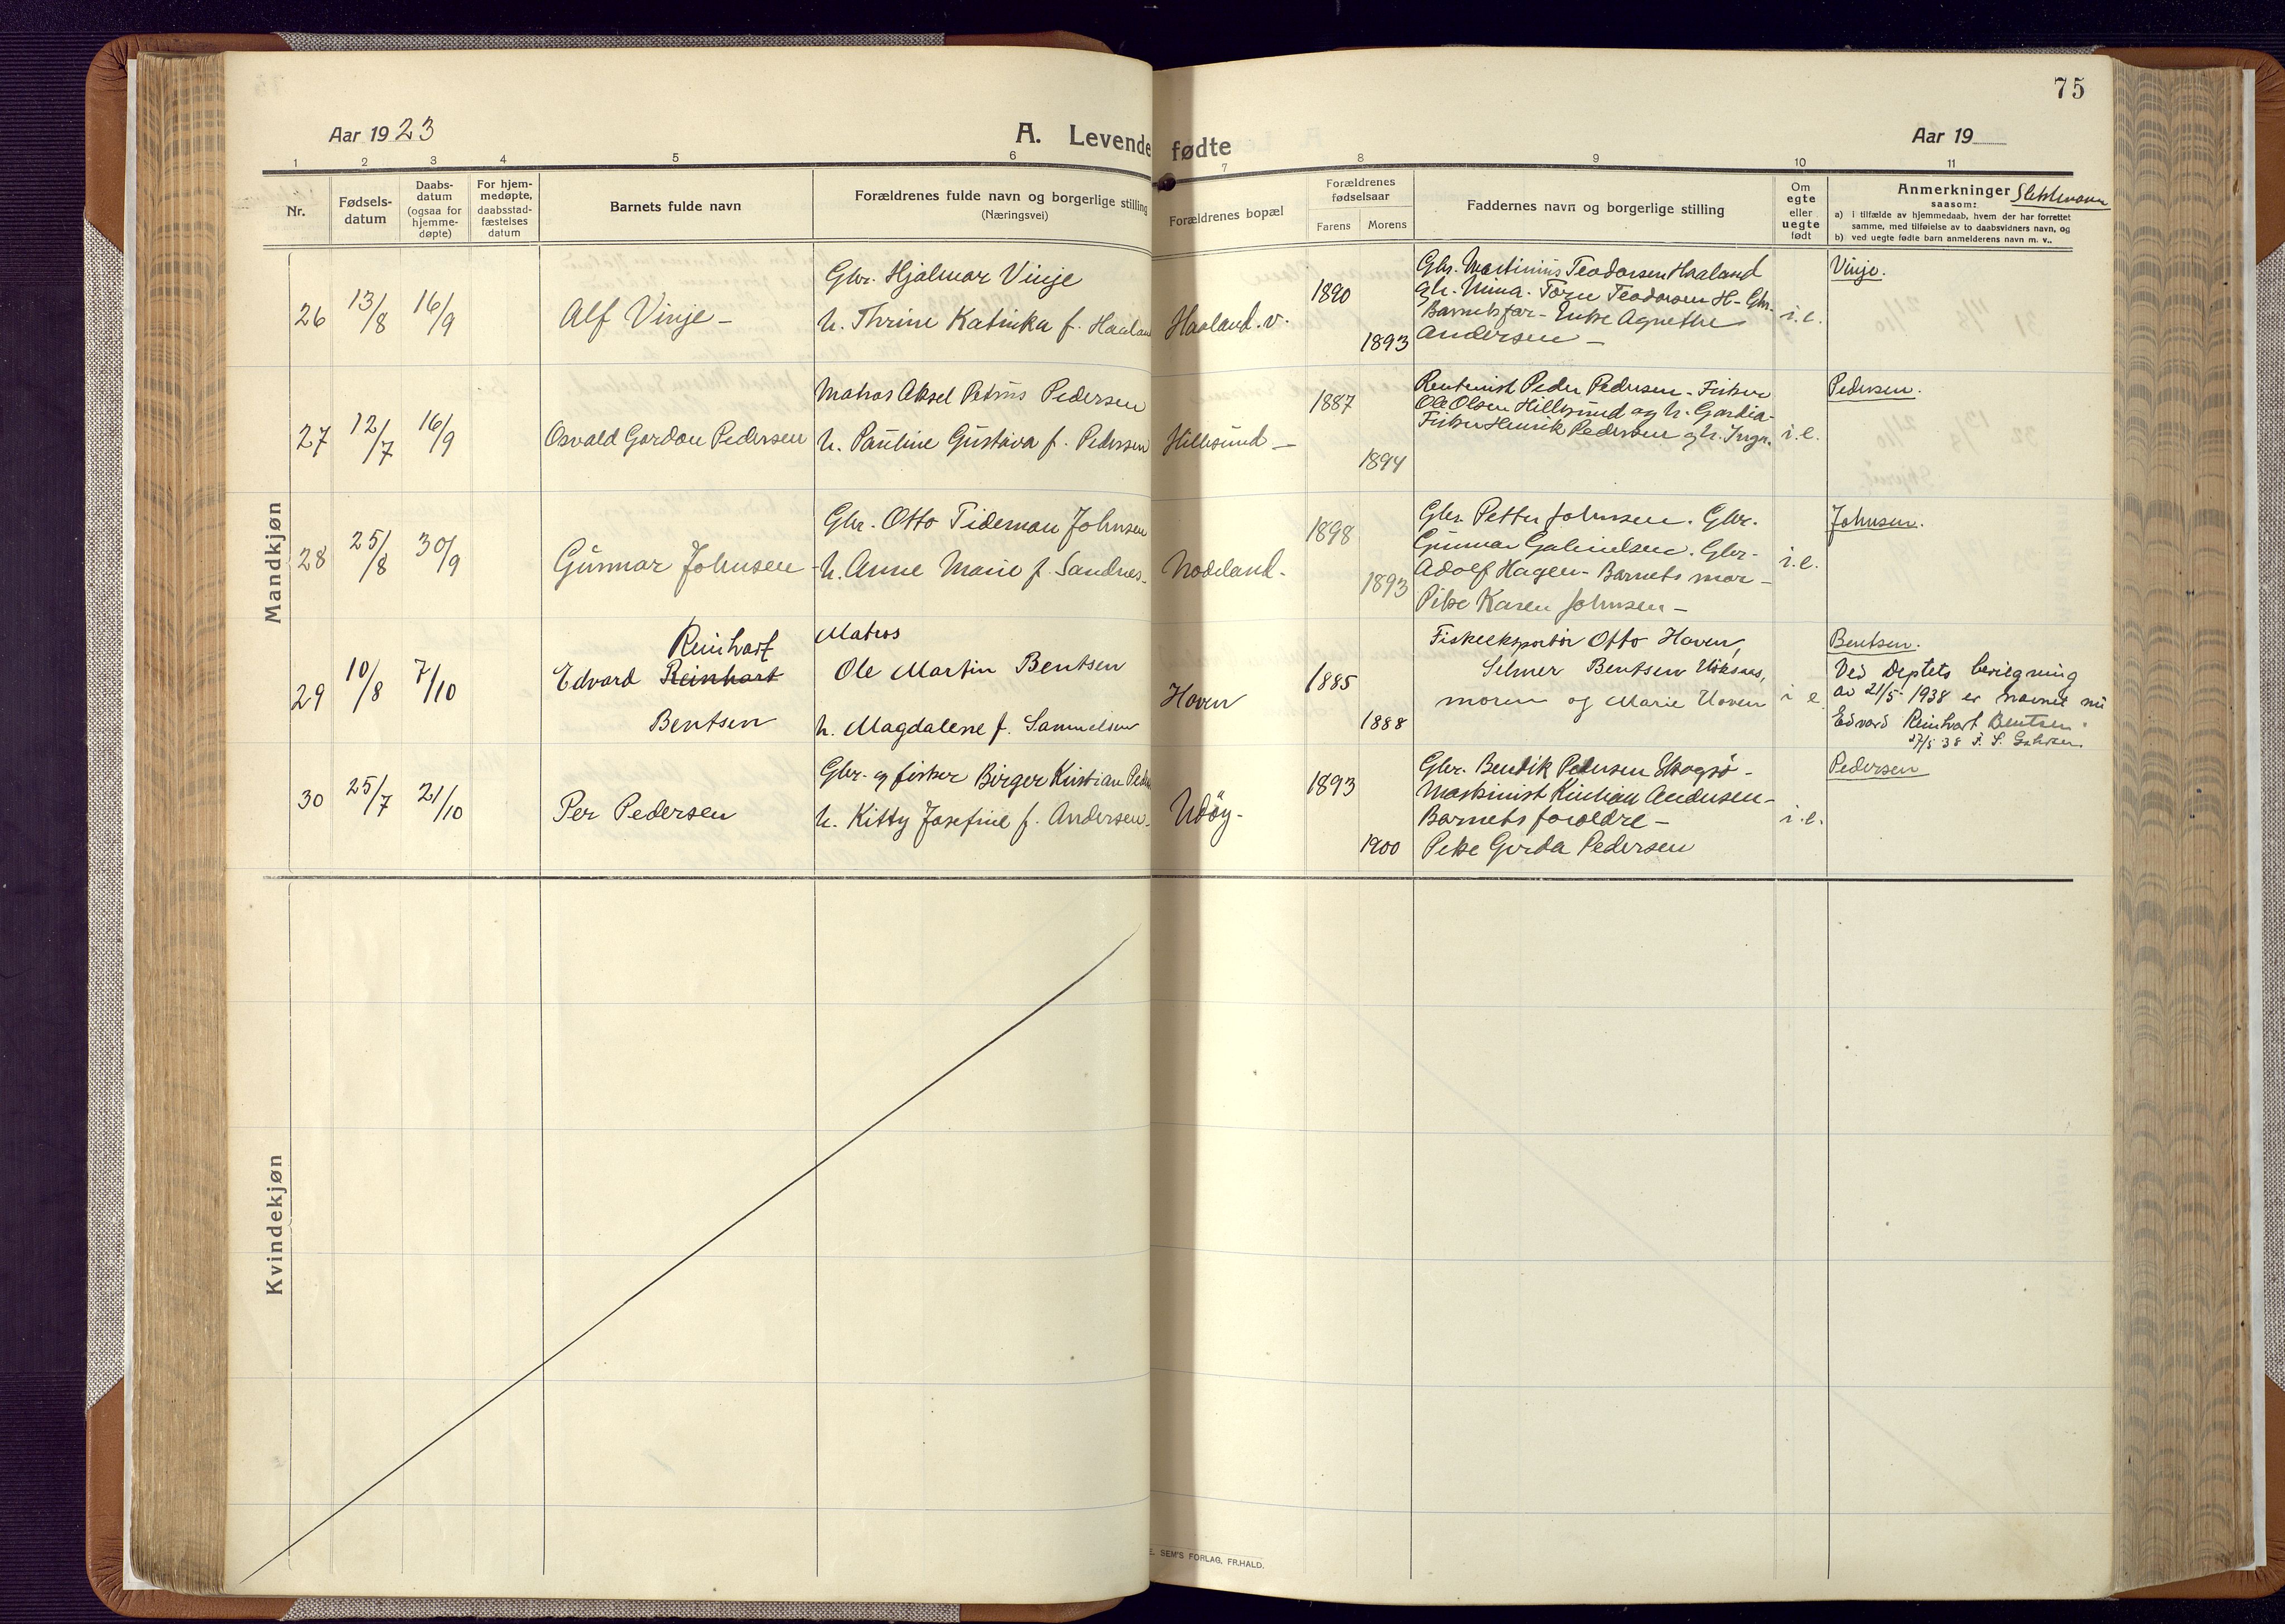 75
Aar 1923
A. Levende fødte
Aar 19
1 2 3 4 5 6 7 8 9 10 11
Nr.
Fødsels-
datum
Daabs-
datum
(ogsaa for
hjemme-
døpte)
For hjem-
medøpte,
daabsstad-
fæstelses
datum
Barnets fulde navn
Forældrenes fulde navn og borgerlige stilling
(Næringsvei)
Forældrenes bopæl
Forældrenes
fødselsaar
Farens Morens
Faddernes navn og borgerlige stilling
Om
egte
eller
uegte
født
Anmerkninger
saasom:
a) i tilfælde av hjemmedaab, hvem der har forrettet
samme, med tilføielse av to daabsvidners navn, og
b) ved uegte fødte barn anmelderens navn m. v..
Slektsnavn
Mandkjøn
26 13/8 16/9
Alf Vinje -
Gbr. Hjalmar Vinje
h. Thrine Katinka f. Haaland
Haaland. v.
1890
1893
Gbr. Martinius Teodorsen Haaland
gh. Mina. Torn Teodorsen H- Gbr.
Barnets far - Enke Agnethe
Andersen -
i.e.
Vinje.
27 12/7 16/9
Osvald Gordon Pedersen
Matros Aksel Petrus Pedersen
h. Pauline Gustava f. Pedersen
Hillesund -
1887
1894
Rentenist Peder Pedersen - Fisker
Ole Olsen Hillesund og h. Gardia-
Fisker Henrik Pedersen og h. Inga.
i.e.
Pedersen.
28 25/8 30/9
Gunnar Johnsen -
Gbr. Otto Tideman Johnsen
h. Anne Marie f. Sandnes -
Nodeland -
1898
1893
Gbr. Petter Johnsen. Gbr.
Gunnar Gabrielsen. Gbr-
Adolf Hagen - Barnets mor -
Pike Karen Johnsen -
i.e.
Johnsen.
29 10/8 7/10
Reinhart
Edvard Reinhart
Bentsen
Matros
Ole Martin Bentsen
h. Magdalene f. Samuelsen
Haven
1885
1888
Fiskeeksportør Otto Haven,
Selmer Bentsen Uiksaas,
moren og Marie Haven
i e
Bentsen.
Ved Deptets bevilgning
av 21/5 1938 er navnet nu
Edvard Reinhart Bentsen.
27/5 38
30 25/7 21/10
Per Pedersen
Gbr. og fisker Birger Kristian Peders
h. Kitty Josefine f. Andersen.
Udøy -
1893
1900
Gbr. Bendik Pedersen Skogsø -
Maskinist Kristian Andersen -
Barnets foreldre -
Pike Gerda Pedersen
i.e.
Pedersen
Kvindekjøn
E. SEM'S FORLAG, FR.HALD.